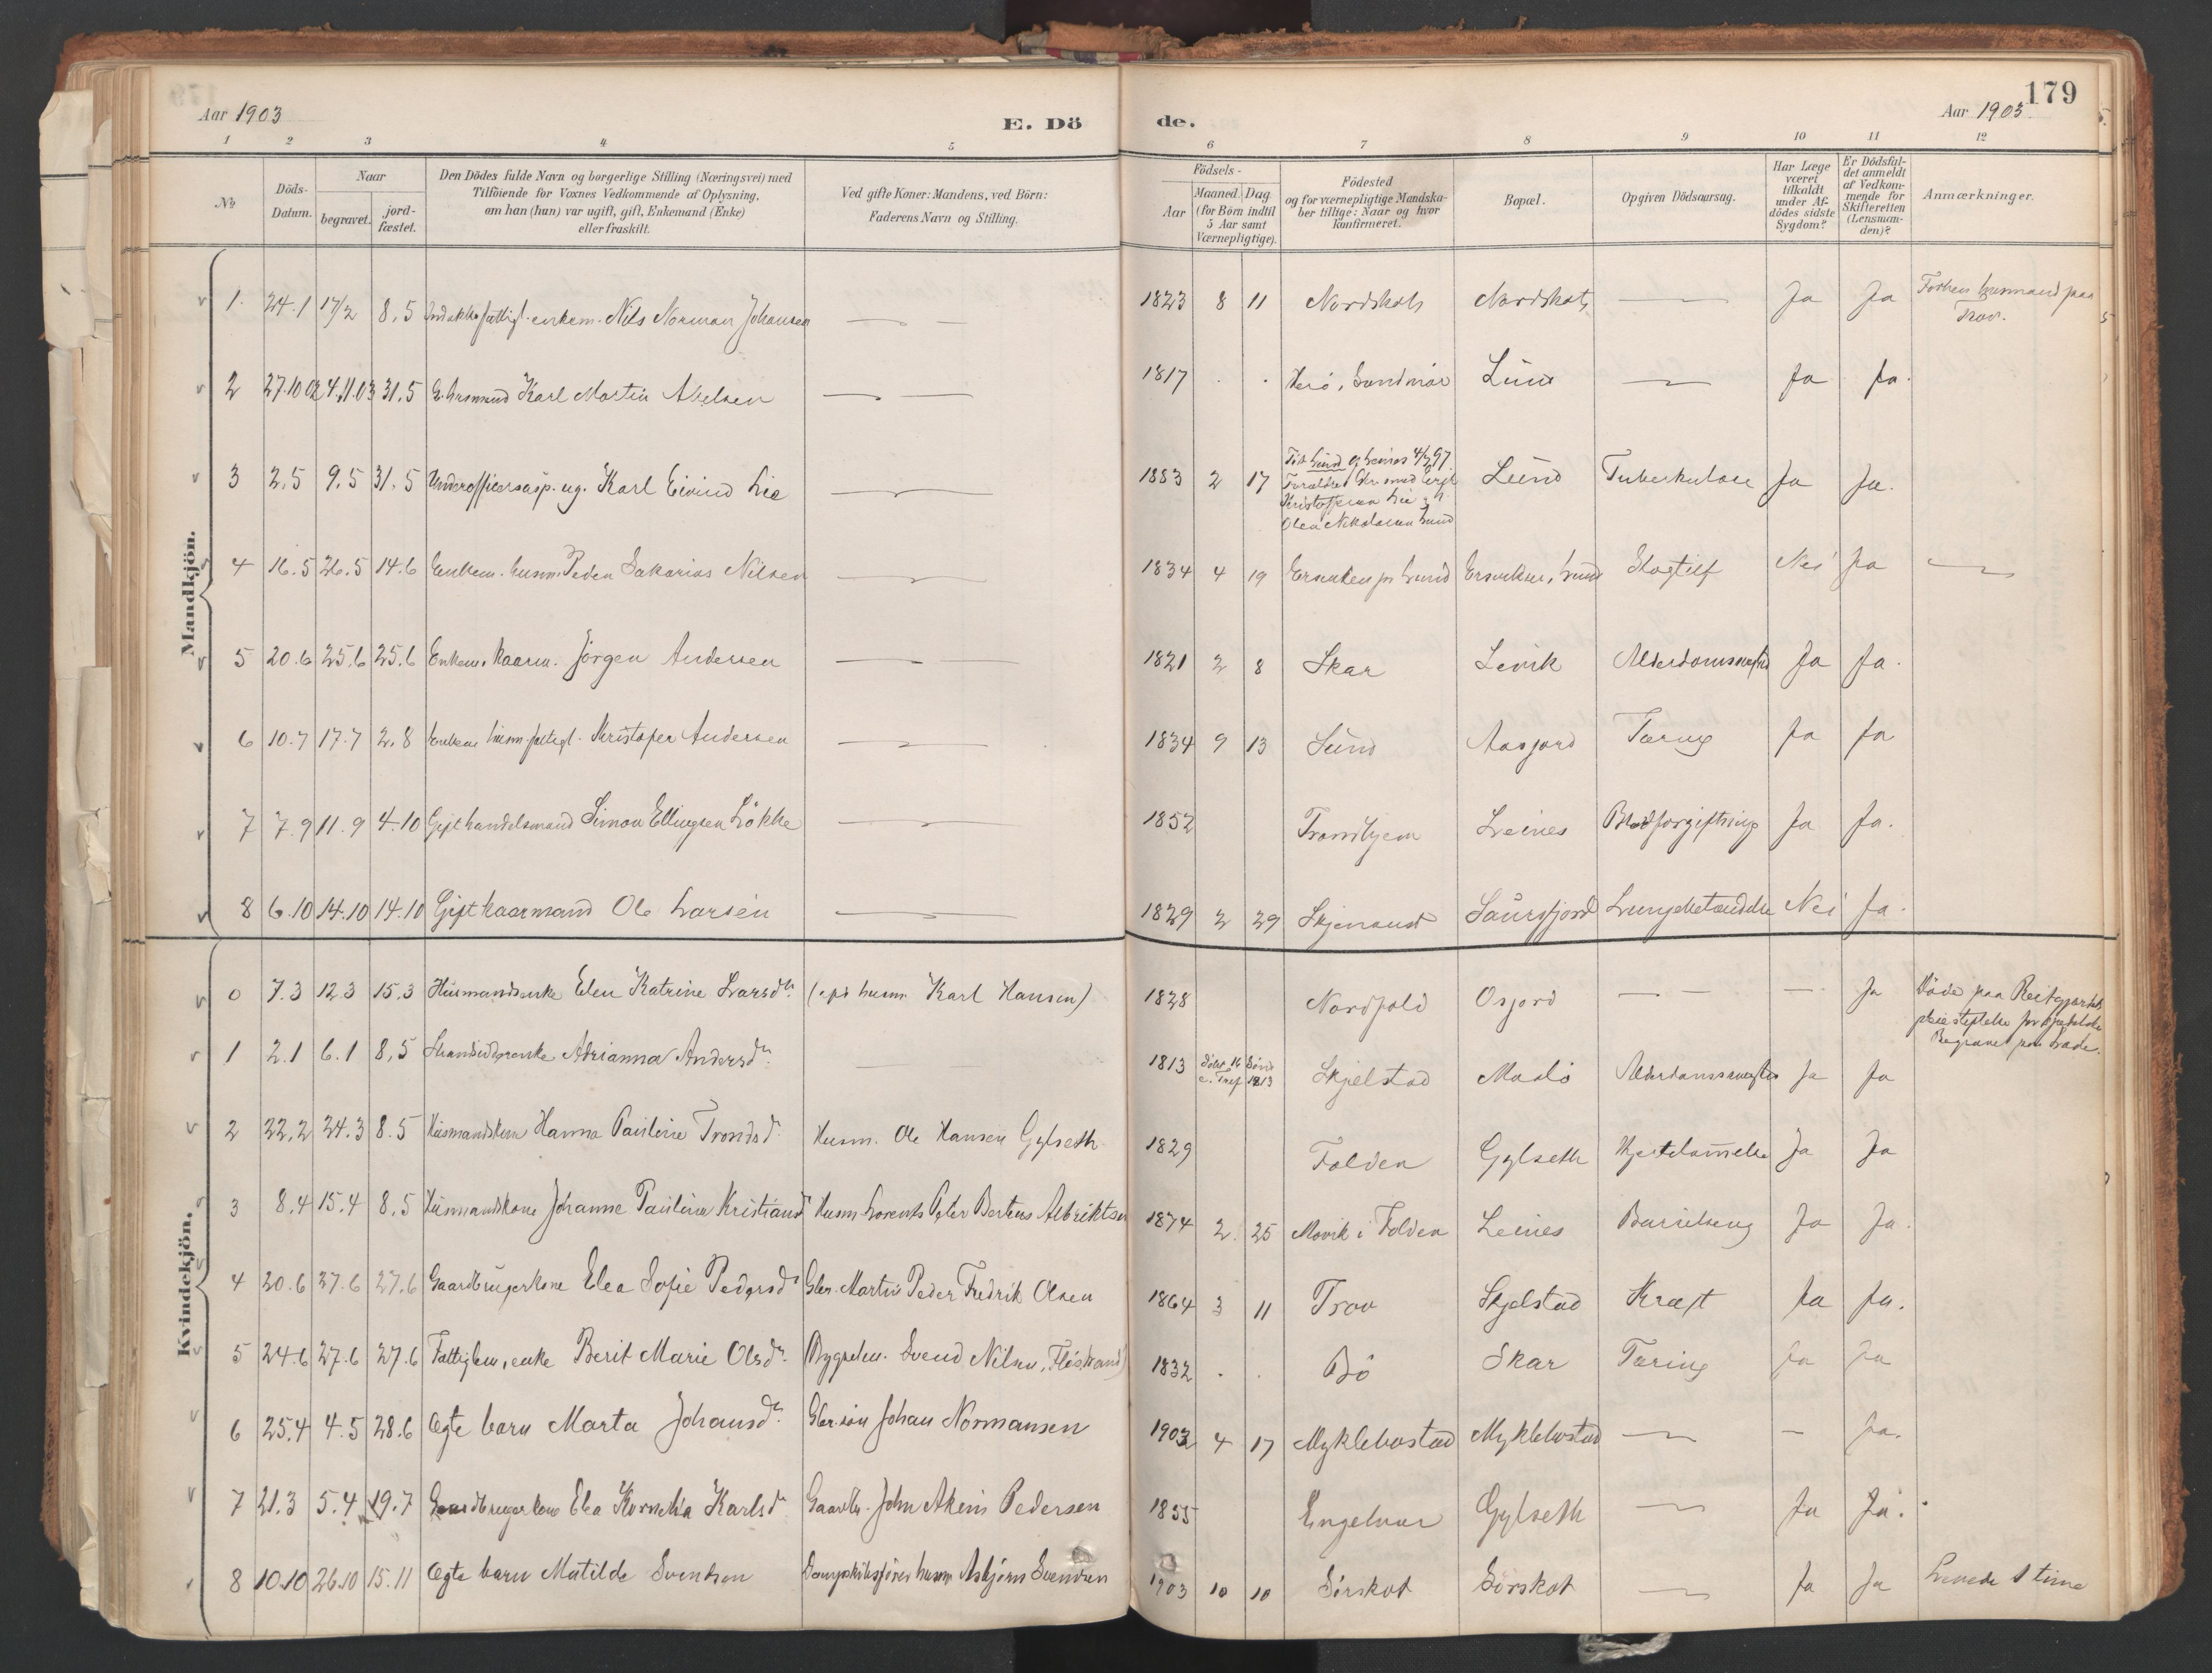 179
Aar 1903
E. Dö
de.
Aar 1903
1 2 3 4 5 6 7 8 9 10 11 12
№
Döds-Datum.
Naar
begravet.
jord-fæstet.
Den Dödes fulde Navn og borgerlige Stilling (Næringsvei) med
Tilföiende for Voxnes Vedkommende af Oplysning,
om han (hun) var ugift, gift, Enkemand (Enke)
eller fraskilt.
Ved gifte Koner: Mandens, ved Börn:
Faderens Navn og Stilling.
Födsels-
Aar
Maaned. Dag
(for Börn indtil
5 Aar samt
Værnepligtige).
Födested
og for værnepligtige Mandska-
ber tillige: Naar og hvor
konfirmeret.
Bopæl.
Opgiven Dödsaarsag.
Har Læge
været
tilkaldt
under Af-
dödes sidste
Sygdom?
Er Dödsfal-
det anmeldt
af Vedkom-
mende for
Skifteretten
(Lensman-
den)?
Anmærkninger.
Mandkjön.
1. 24.1 17/2 8.5 enkem. Nils Norman Johansen 1823 8 11 Nordskot Nordskot Ja Ja Forhen husmand paa
2 27.10.02 4.11.03 31.5 G. husmand Karl Martin Abelsen 1817 . . Herö, Søndmør Lund Ja Ja.
3 2.5 9.5 31.5 Underofficersasp. ug. Karl Eivind Lie 1883 2 17 Lund og Leines 4/7 97 Lund Tuberkulose Ja Ja.
Forældre
Kristofersen Lie og
Olea Nikolasen Lund
4 16.5 26.5 14.6 Enkem. husm. Peder Sakarias Nilsen 1834 4 19 Lund Lund Slagtilf Nei Ja
5 20.6 25.6 25.6 Enkem. kaarm. Jörgen Andersen 1821 2 8 Skar Levik Ja Ja.
6 10.7 17.7 2.8 Enkem husm. fattigl. Kristofer Andersen 1834 9 13 Lund Aasjord Tæring Ja Ja
7 7.9 11.9 4.10 Gift handelsmand Simon Ellingsen Lökke 1852 Trondhjem Leines Blodforgiftning Ja Ja.
8 6.10 14.10 14.10 Gift kaarmand Ole Larsen 1829 2 29 Skjenaust Laursfjord Lungebetændelse Nei Ja.
Kvindekjön.
0 7.3 12.3 15.3 Husmandsenke Elen Katrine Larsdr. husm. Karl Hansen) 1828 Nordfold Osjord — Ja Döde paa Reitgjærdets
pleiestiftelse for spedalske
Begravet paa
1 2.1 6.1 8.5 Adrianna Andersdr. 1813 Skjelstad Maalö Ja Ja
2 22.2 24.3 8.5 Husmandskone Hanna Pauline Trondsd. Husm. Ole Hansen Gylseth 1829 Folden Gylseth Hjertelammelse Ja Ja
3 8.4 15.4 8.5 Husmandskone Johanne Pauline Kristiansdr Husm. Lorents Peter Berteus Albriktsen 1874 2. 25 Movik i Folden Leines Barselseng Ja Ja.
4 20.6 27.6 27.6 Gaardbrugerkone Elea Sofie Pedersdr Gbr. Martin Peder Fredrik Olsen 1864 3 11 Trov Skjelstad Kræft Ja Ja.
5 24.6 27.6 27.6 Fattiglem, enke Berit Marie Olsdr. Svend Nilsen, 1832 . . Bö Skar Tæring Ja Ja
6 25.4 4.5 28.6 Ægte barn Marta Johansdr. Gbr.sön Johan Normansen 1902 4 17 Myklebostad Myklebostad — Ja.
7 21.3 5.4 19.7 Gaardbrugerkone Elea Kornelia Karlsdr Gaardbr. John Akenis Pedersen 1855 Engelvær Gylseth Ja Ja.
8 10.10 26.10 15.11 Ægte barn Matilde Svendsen Dampskibsförer husm Asbjörn Svendsen 1903 10 10 Sörskot Sörskot Ja Ja Levede 1 time